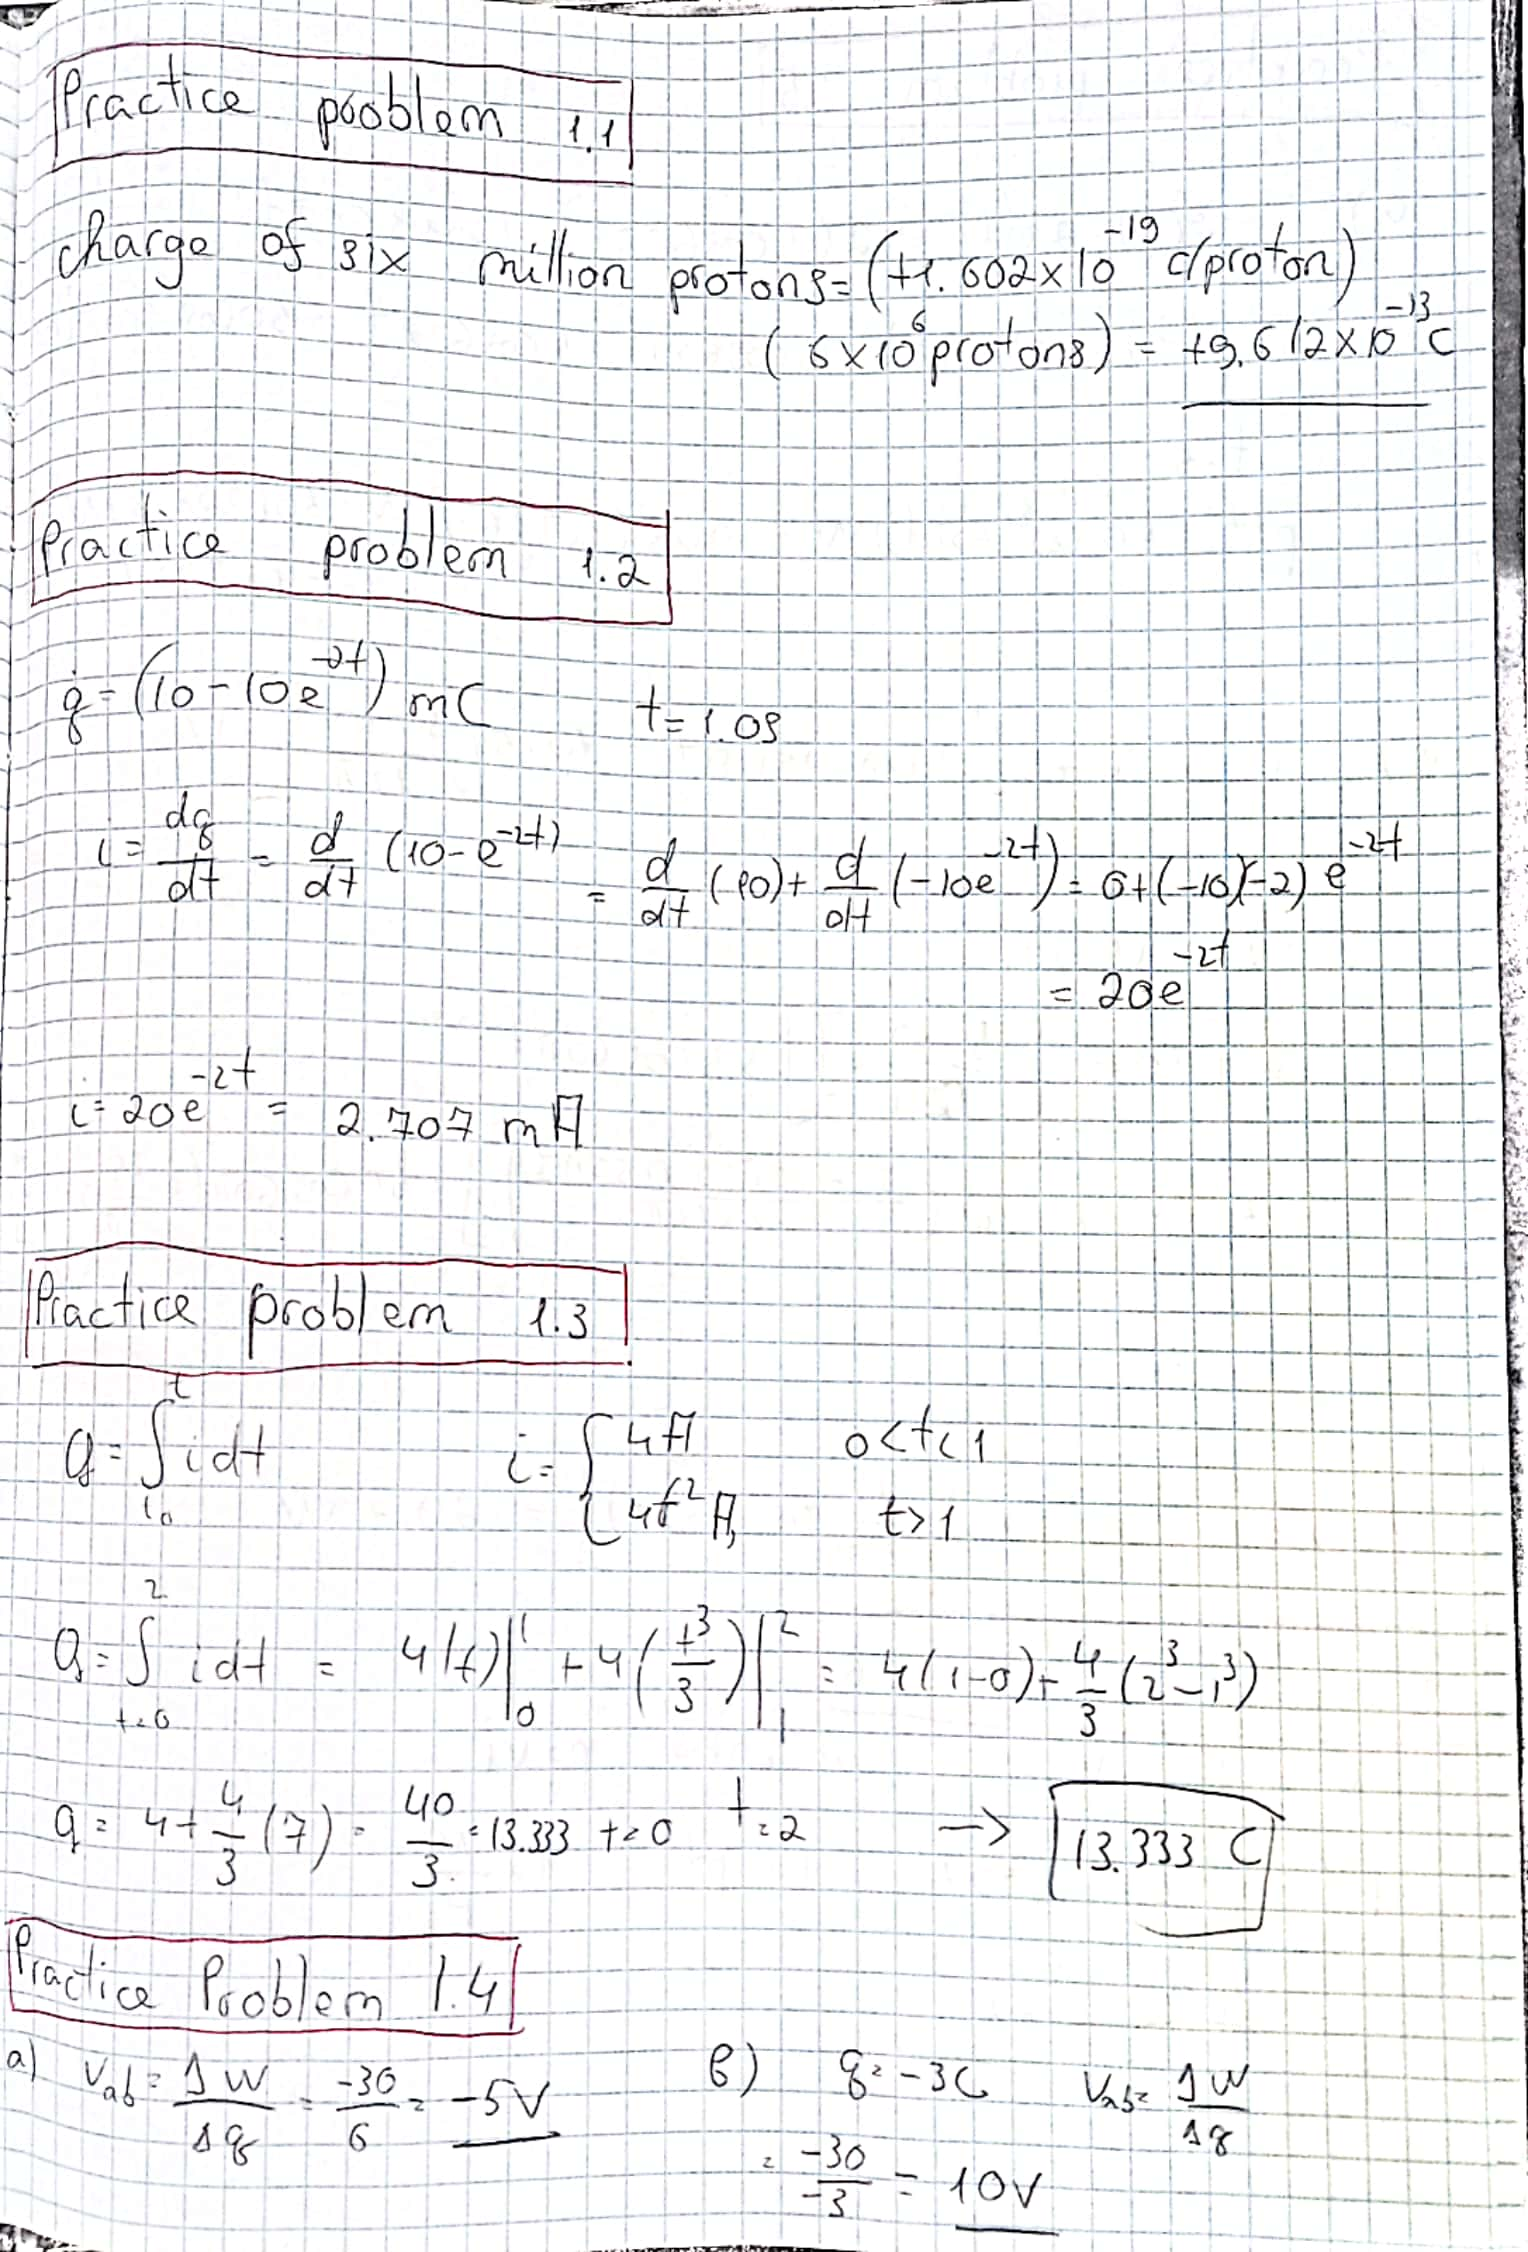 Practice problem 1.1
charge of six million protons = (+1.602×10⁻¹⁹ c/proton)
(6×10⁶ protons) = +9.612×10⁻¹³ C
Practice problem 1.2
q = (10-10e⁻²ᵗ) mC t = 1.0s
i = dq/dt = d/dt (10-e⁻²ᵗ) = d/dt (10) + d/dt (-10e⁻²ᵗ) = 0+(-10)(-2) e⁻²ᵗ
= 20e⁻²ᵗ
i = 20e⁻²ᵗ = 2.707 mA
Practice problem 1.3
Q = ∫ₜ₀ᵗ i dt i = { 4A 0<t<1
4t² A, t>1
Q = ∫ₜ₌₀² i dt = 4(t)|₀¹ + 4(t³/3)|₁² = 4(1-0) + 4/3 (2³-1³)
q = 4+4/3 (7) = 40/3 = 13.333 t=0 t=2 → 13.333 C
Practice Problem 1.4
a) Vab = ΔW/Δq = -30/6 = -5V b) q = -3C Vab = ΔW/Δq
= -30/-3 = 10V